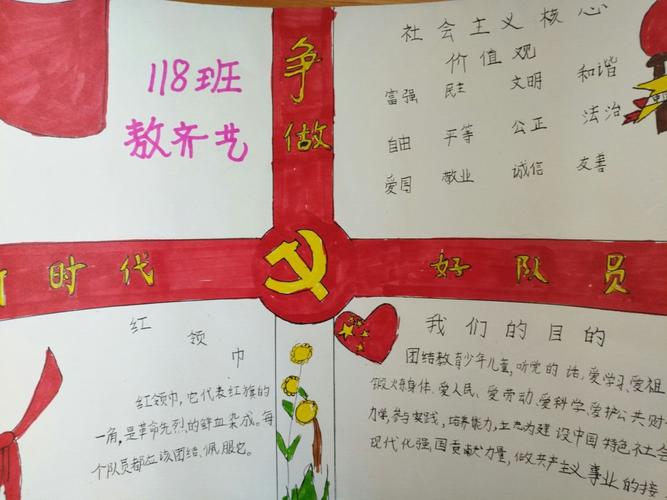 118班
敖齐艺
争
做
社会主义核心
价值观
富强 民主 文明 和谐
自由 平等 公正 法治
爱国 敬业 诚信 友善
时代
好队员
红领
巾
红领巾,它代表红旗的
一角,是革命先烈的鲜血染成。每
个队员都应该团结、佩服它。
我们的目的
团结教育少年儿童,听党的话,爱学习、爱祖
锻炼身体、爱人民、爱劳动、爱科学、爱护公共财
力学,参与实践,培养能力,立志为建设中国特色社会
现代化强国贡献力量,做共产主义事业的接